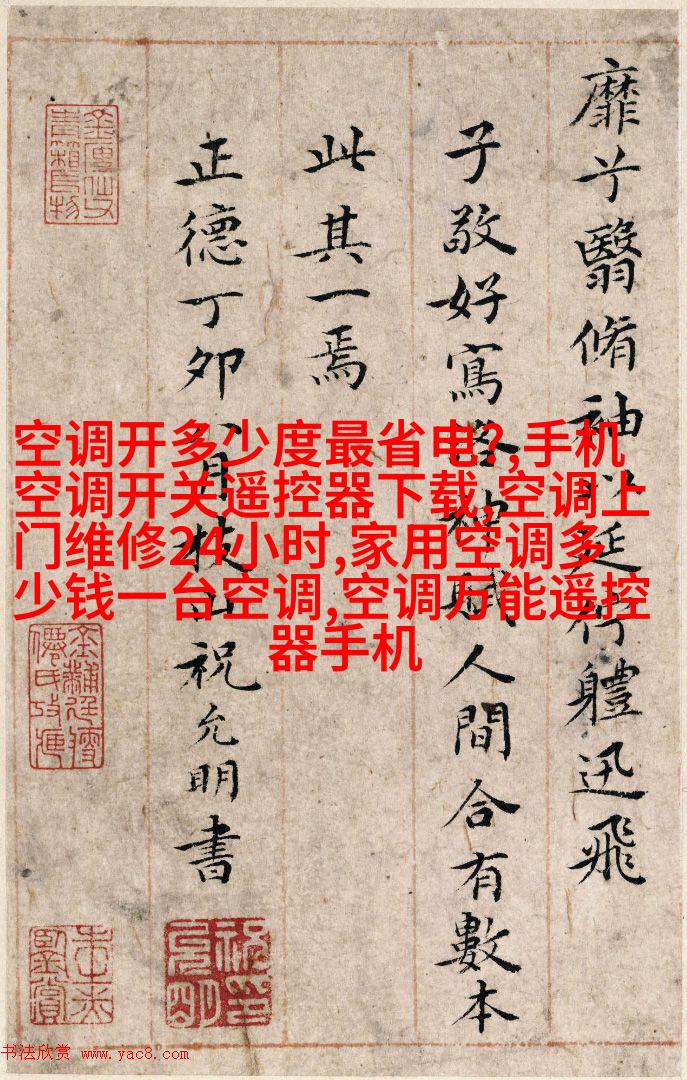 靡兮翳脩袖以延佇體迅飛
子敬好寫洛神賦人間合有數本
此其一焉
正德丁卯八月枝山祝允明書
空调开多少度最省电?,手机
空调开关遥控器下载,空调上
门维修24小时,家用空调多
少钱一台空调,空调万能遥控
器手机
书法欣赏 www.yac8.com